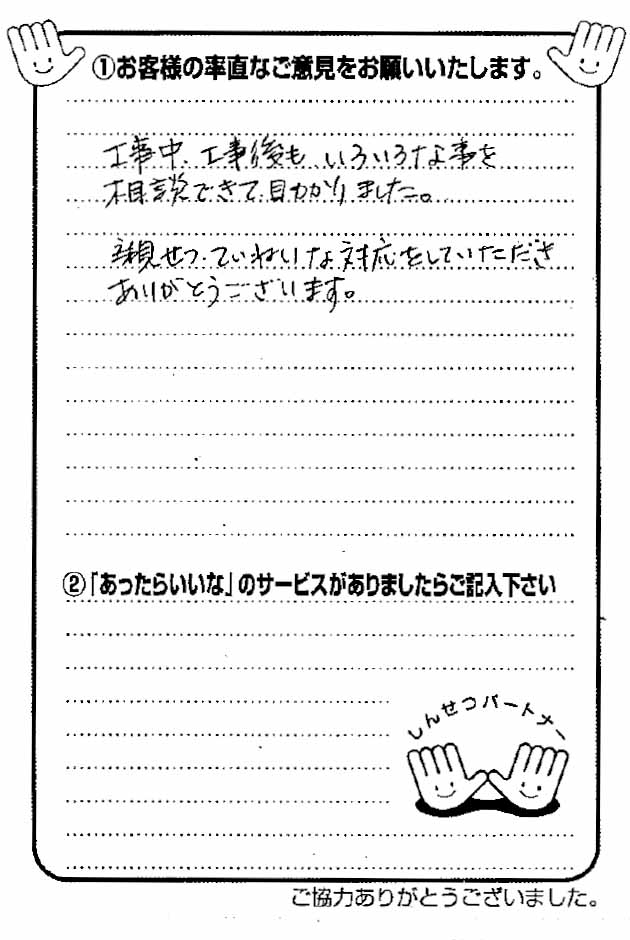 ①お客様の率直なご意見をお願いいたします。
工事中、工事後も、いろいろな事を
相談できて助かりました。
親せつ、ていねいな対応をしていただき
ありがとうございます。
②「あったらいいな」のサービスがありましたらご記入下さい
しんせつパートナー
ご協力ありがとうございました。